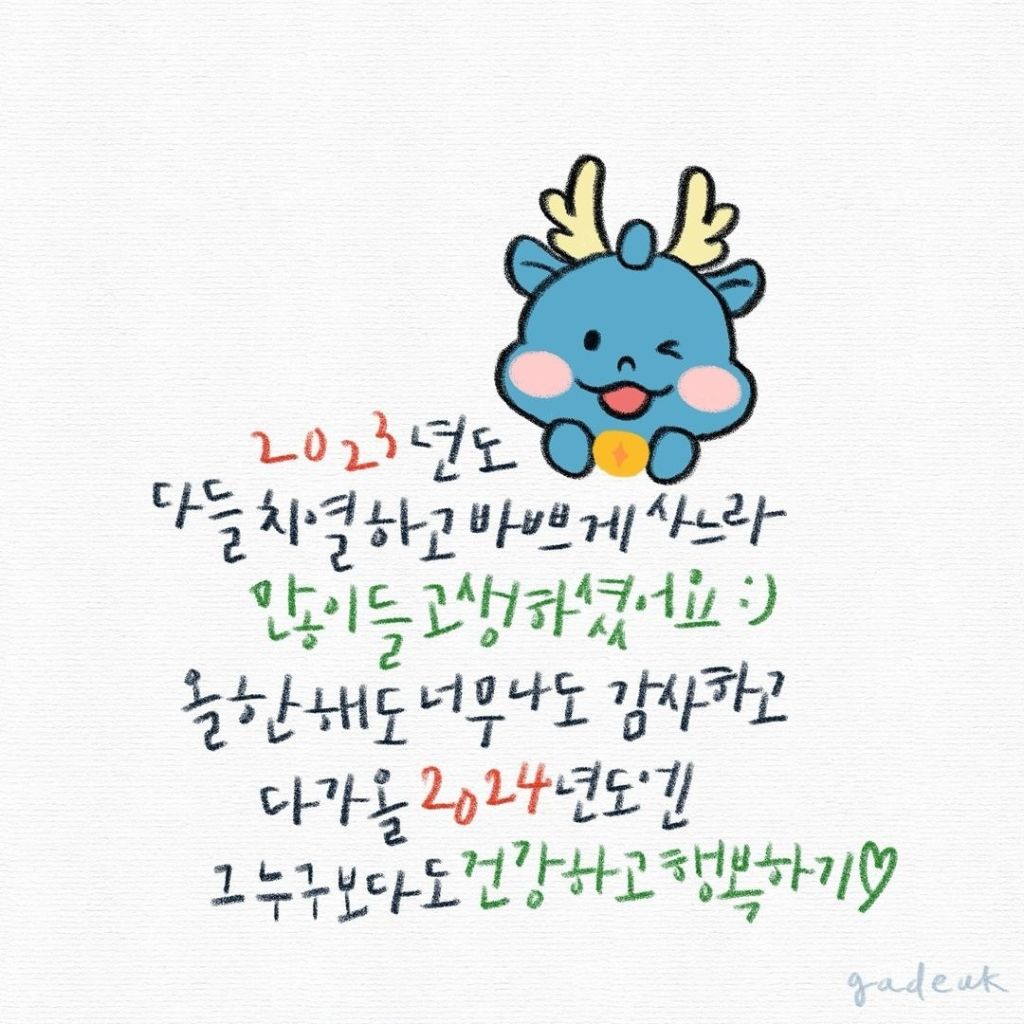 2023년도
다들 치열하고 바쁘게 사느라
많이들 고생하셨어요 :)
올 한해도 너무나도 감사하고
다가올 2024년도엔
그 누구보다도 건강하고 행복하기♡
gadeuk